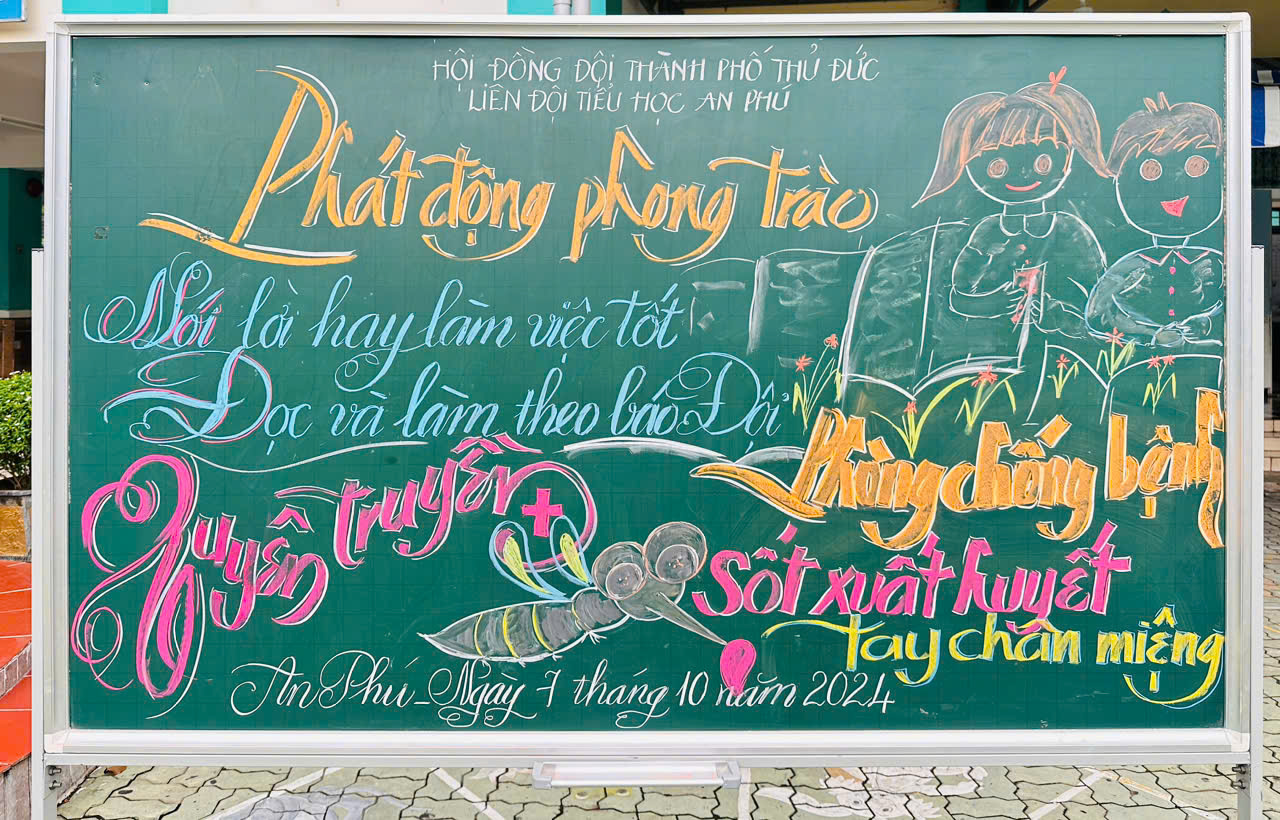 HỘI ĐỒNG ĐỘI THÀNH PHỐ THỦ ĐỨC
LIÊN ĐỘI TIỂU HỌC AN PHÚ
Phát động phong trào
Nói lời hay làm việc tốt
Đọc và làm theo báo Đội
Tuyên truyền
Phòng chống bệnh
Sốt xuất huyết
tay chân miệng
An Phú - Ngày 7 tháng 10 năm 2024